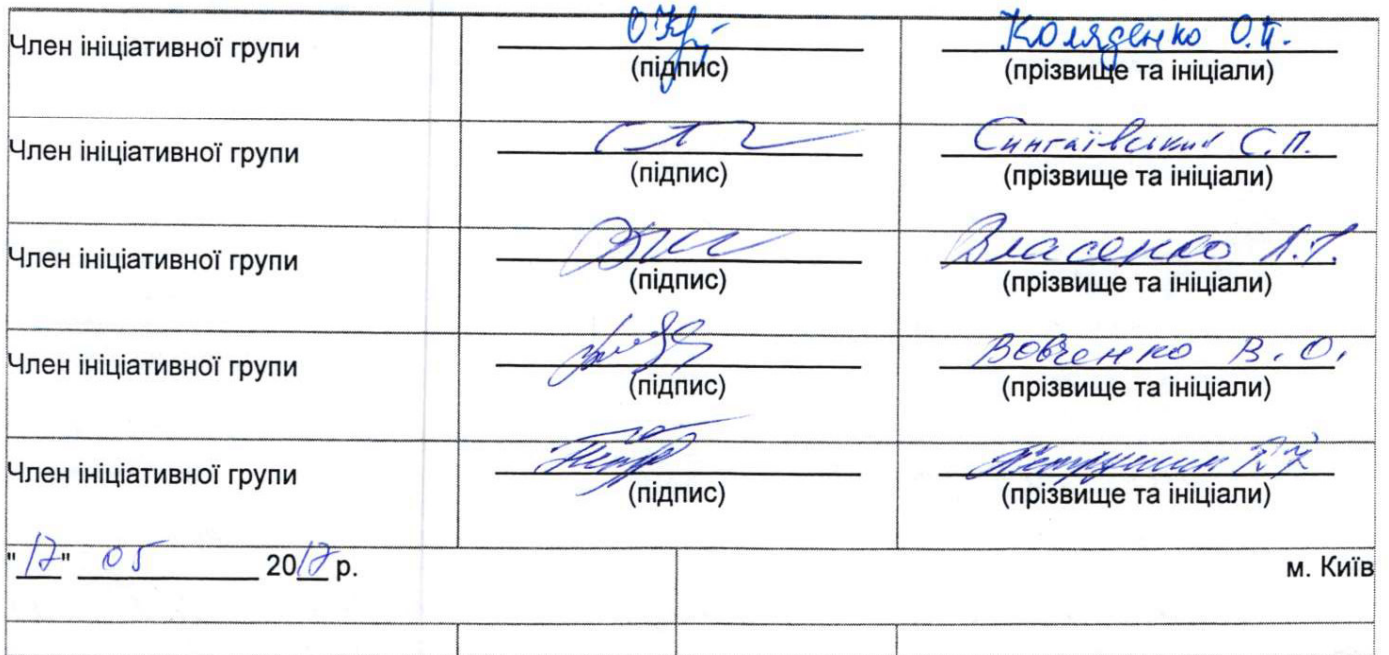 Член ініціативної групи Коляденко О.П.
(підпис) (прізвище та ініціали)
Член ініціативної групи Сингаївський С.П.
(підпис) (прізвище та ініціали)
Член ініціативної групи Власенко
(підпис) (прізвище та ініціали)
Член ініціативної групи Вовченко В.О.
(підпис) (прізвище та ініціали)
Член ініціативної групи
(підпис) (прізвище та ініціали)
"17" 05 2017 р. м. Київ